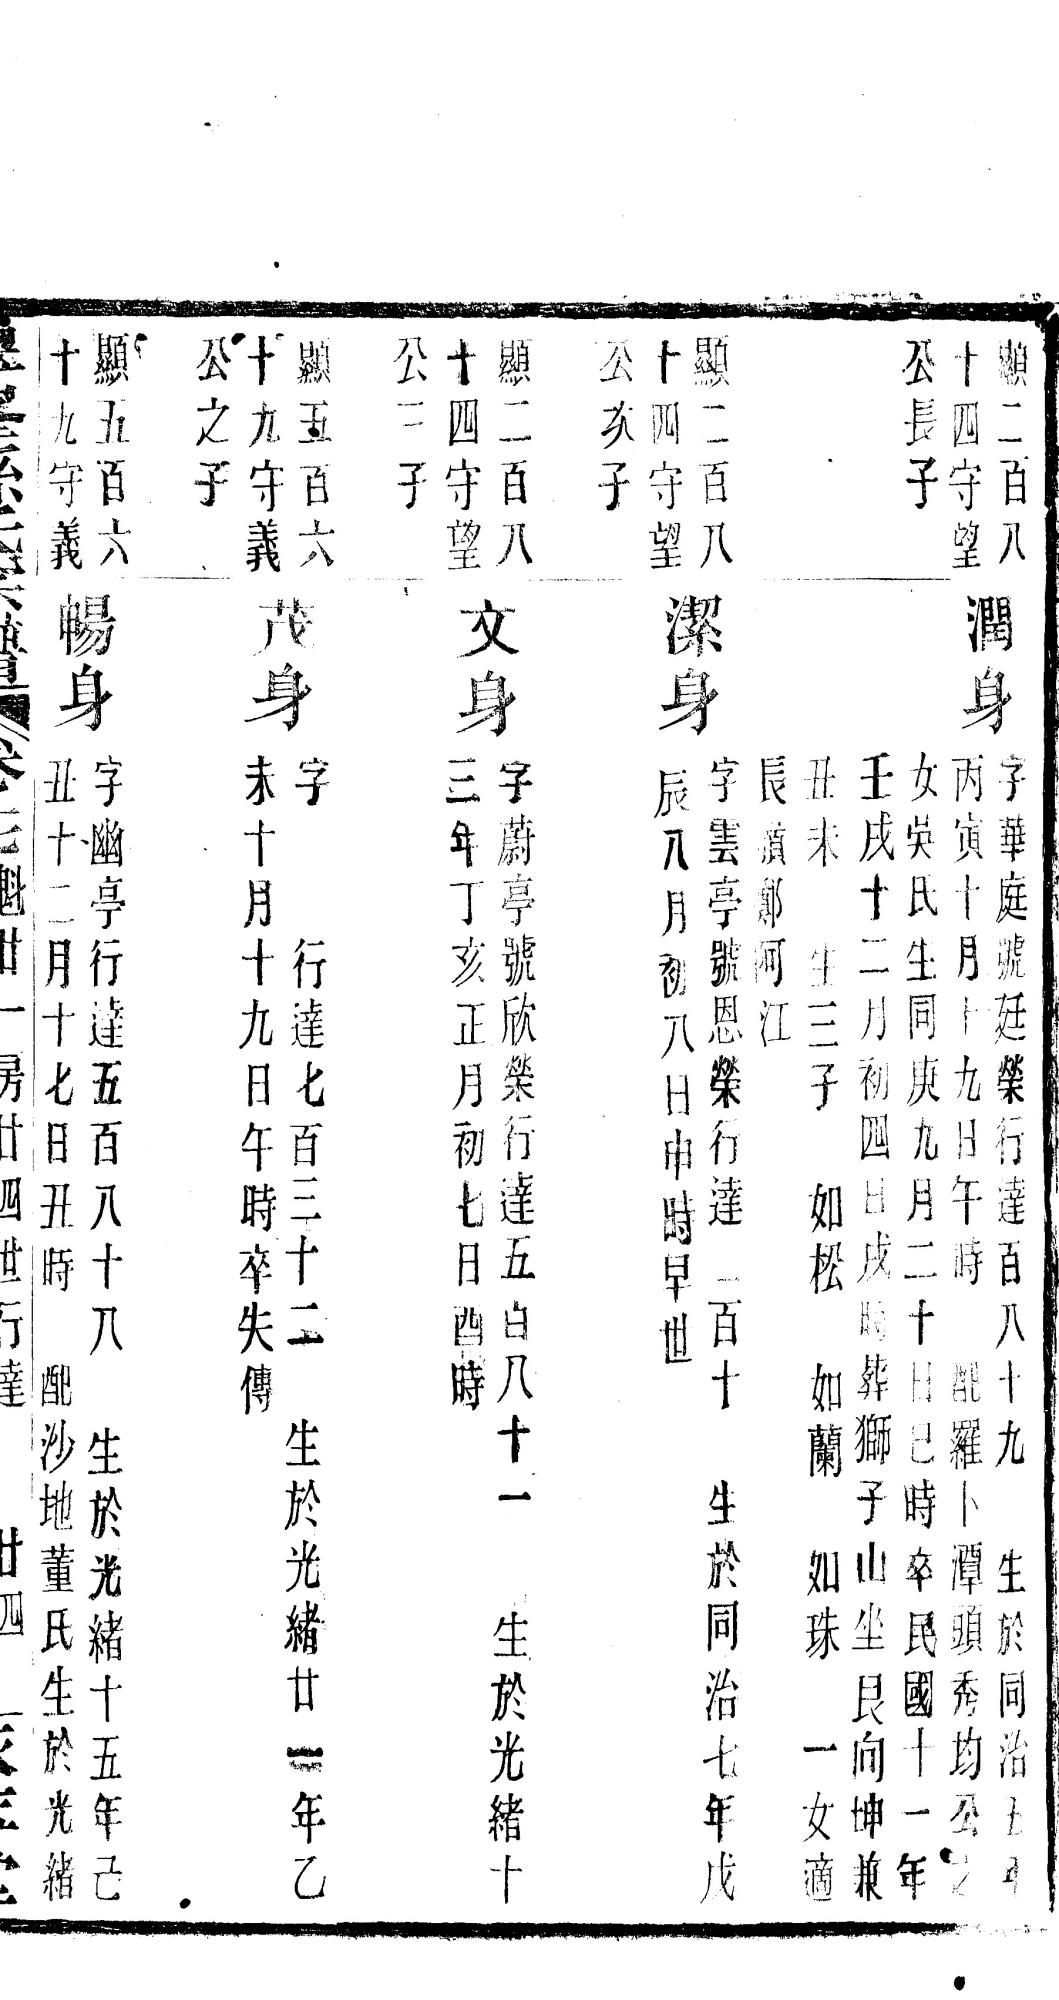 顯二百八
十四守望
公長子
潤身
字華庭號廷榮行達百八十九　生於同治五年
丙寅十月十九日午時　配羅卜潭頭秀均公之
女吳氏生同庚九月二十日巳時卒民國十一年
壬戌十二月初四日戌時葬獅子山坐艮向坤兼
丑未　生三子　如松　如蘭　如珠　一女適
長墳鄭阿江
顯二百八
十四守望
公次子
潔身
字雲亭號恩榮行達二百十　生於同治七年戊
辰八月初八日申時早世
顯二百八
十四守望
公三子
文身
字蔚亭號欣榮行達五百八十一　生於光緒十
三年丁亥正月初七日酉時
顯五百六
十九守義
公之子
茂身
字　　行達七百三十二　生於光緒廿一年乙
未十月十九日午時卒失傳
顯五百六
十九守義
暢身
字幽亭行達五百八十八　生於光緒十五年己
丑十二月十七日丑時　配沙地董氏生於光緒
魁廿一房廿四世行達　廿四